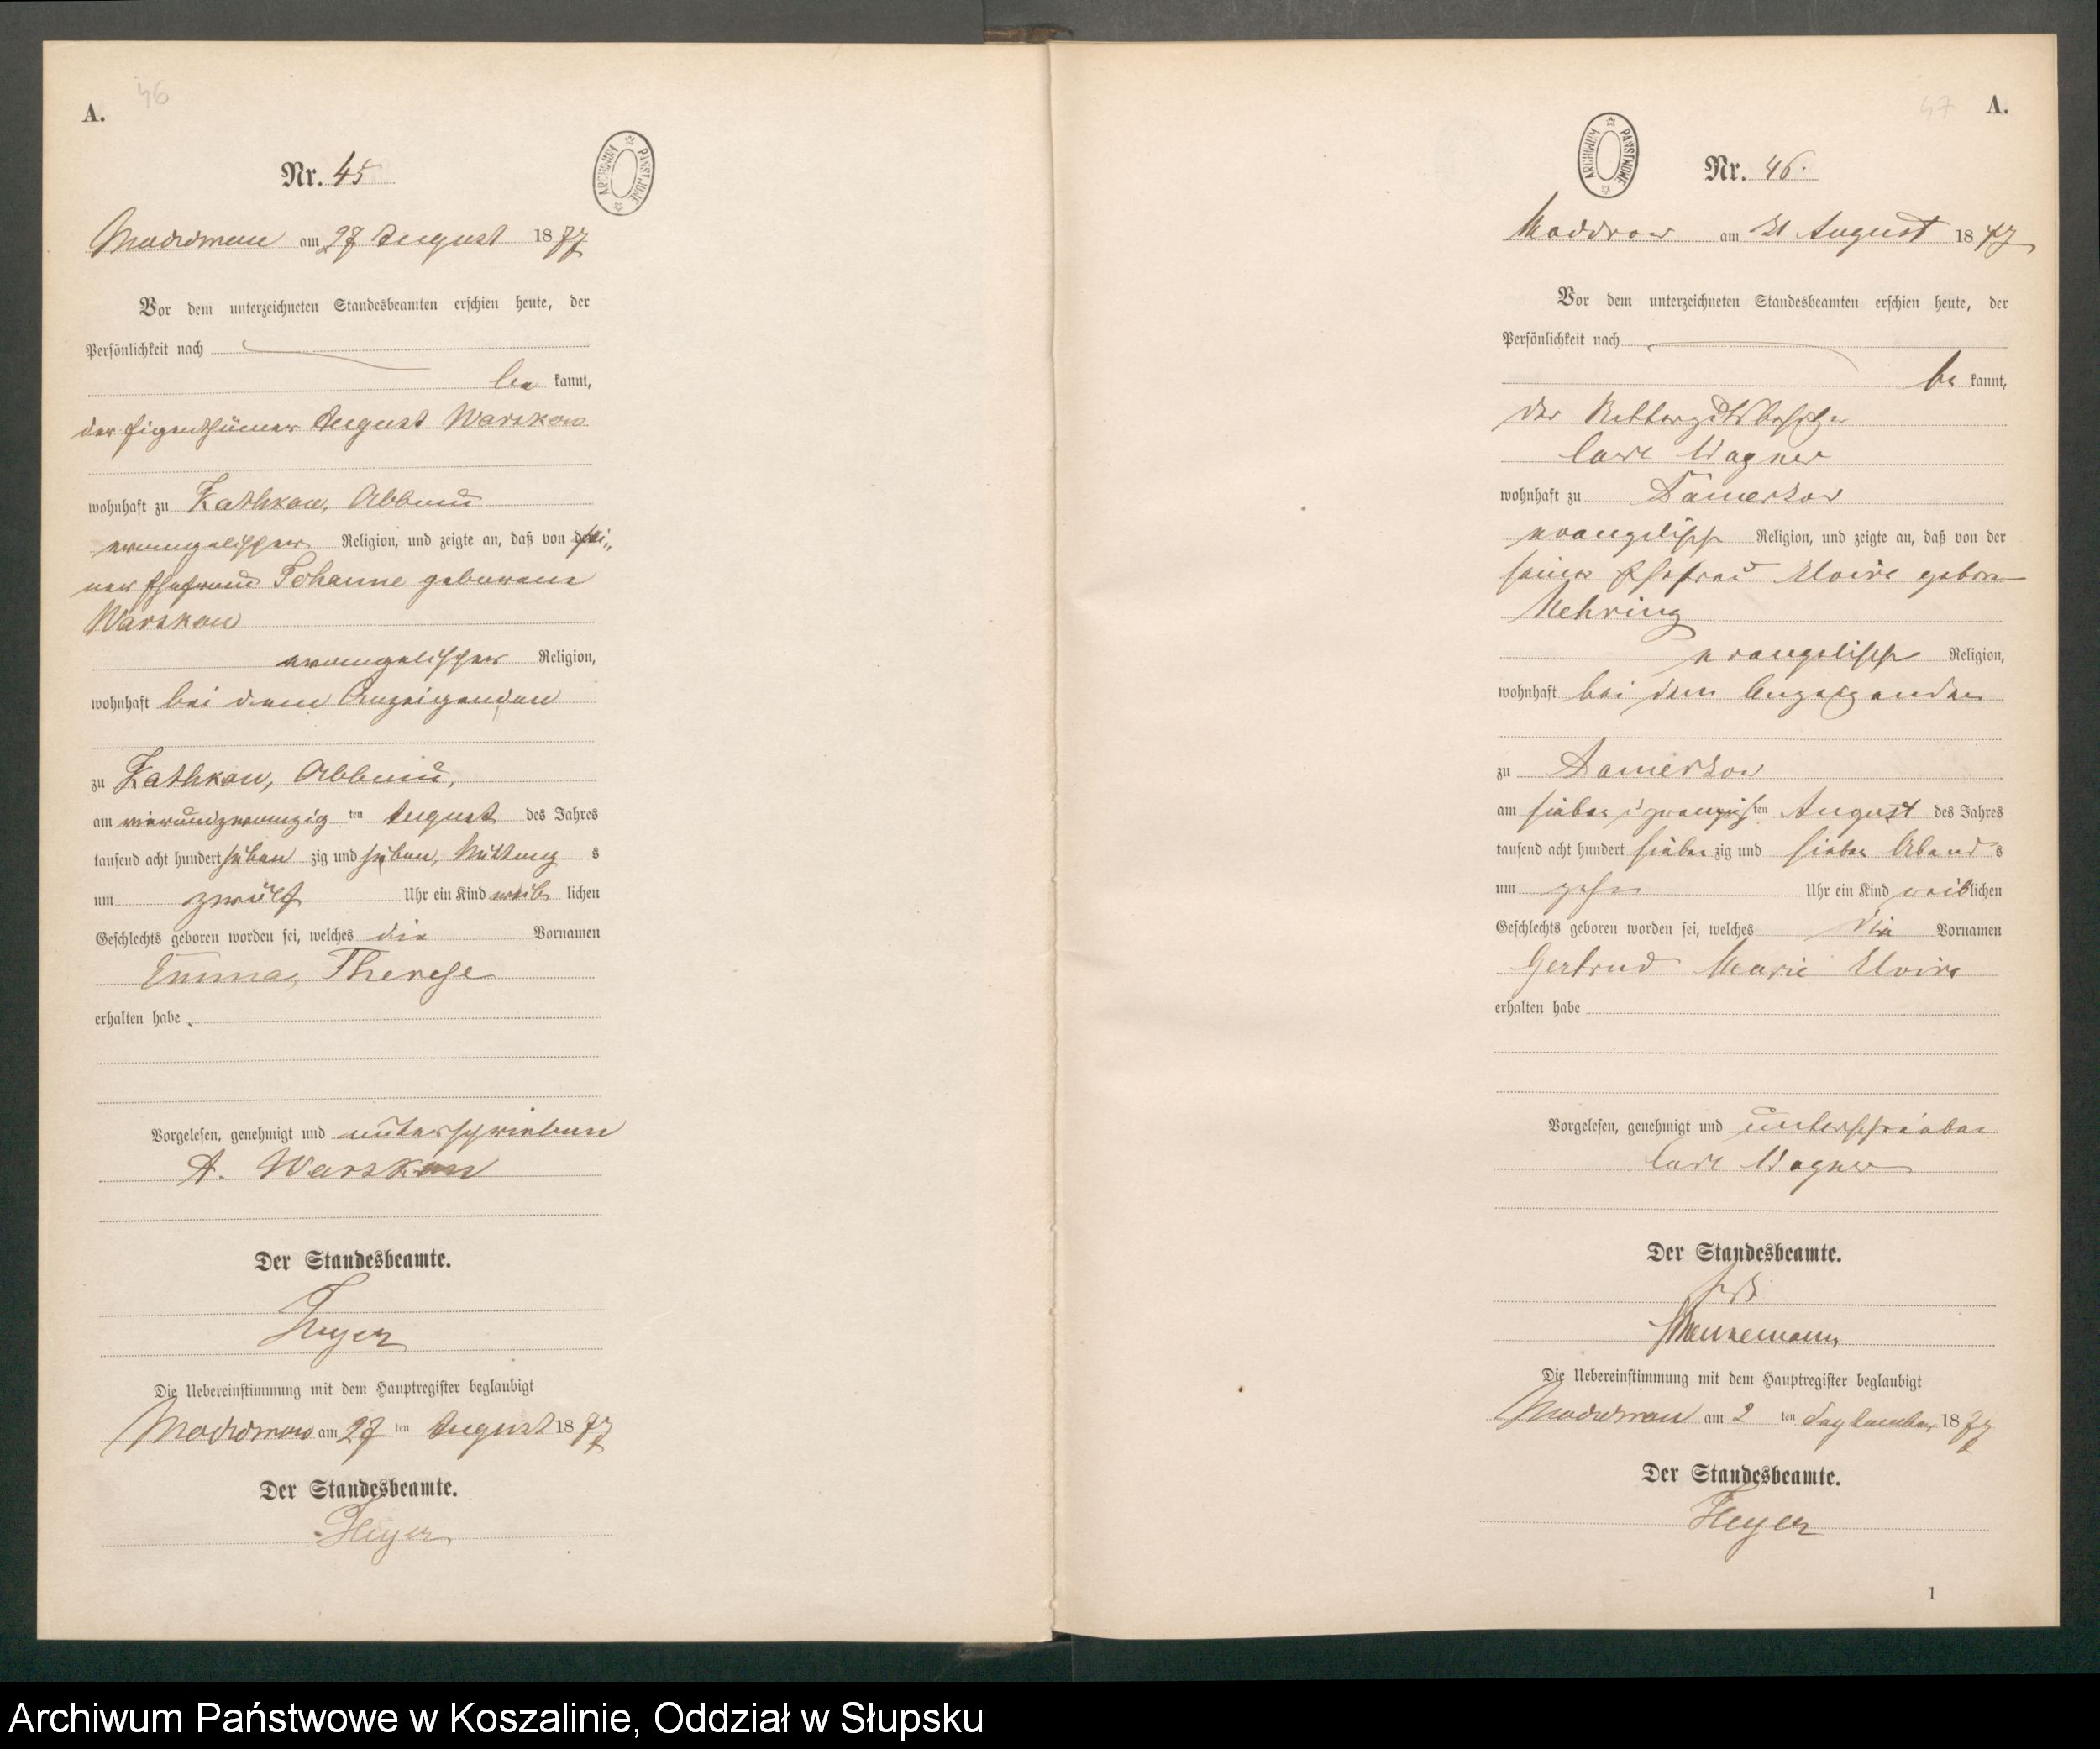 46
A.
Nr. 45
Moddrow am 27 August 1877
Vor dem unterzeichneten Standesbeamten erschien heute, der
Persönlichkeit nach
be kannt,
der Eigenthümer August Warskow
wohnhaft zu Kathkow, Abbau
evangelischer Religion, und zeigte an, daß von der sei„
ner Ehefrau Johanne geborene
Warskow
evangelischer Religion,
wohnhaft bei dem Anzeigenden
zu Kathkow, Abbau,
am vierundzwanzig ten August des Jahres
tausend acht hundert sieben zig und sieben, Mittag s
um zwölf Uhr ein Kind weib lichen
Geschlechts geboren worden sei, welches die Vornamen
Emma, Therese
erhalten habe.
Vorgelesen, genehmigt und unterschrieben
A. Warskow
Der Standesbeamte.
Heyer
Die Uebereinstimmung mit dem Hauptregister beglaubigt
Moddrow am 27 ten August 1877
Der Standesbeamte.
Heyer
ARCHIWUM PAŃSTWOWE
47
A.
ARCHIWUM PAŃSTWOWE
Nr. 46.
Moddrow am 31 August 1877
Vor dem unterzeichneten Standesbeamten erschien heute, der
Persönlichkeit nach
be kannt,
der Rittergutsbesitzer
Carl Wagner
wohnhaft zu Damerkow
evangelisch Religion, und zeigte an, daß von der
seiner Ehefrau Elvire geborne
Nehring
evangelisch Religion,
wohnhaft bei dem Anzeigenden
zu Damerkow
am sieben zwanzigsten August des Jahres
tausend acht hundert sieben zig und sieben Abend s
um zehn Uhr ein Kind weiblichen
Geschlechts geboren worden sei, welches die Vornamen
Gertrud Marie Elvire
erhalten habe
Vorgelesen, genehmigt und unterschrieben
Carl Wagner
Der Standesbeamte.
Die Uebereinstimmung mit dem Hauptregister beglaubigt
Moddrow am 2 ten September 1877
Der Standesbeamte.
Heyer
1
Archiwum Państwowe w Koszalinie, Oddział w Słupsku